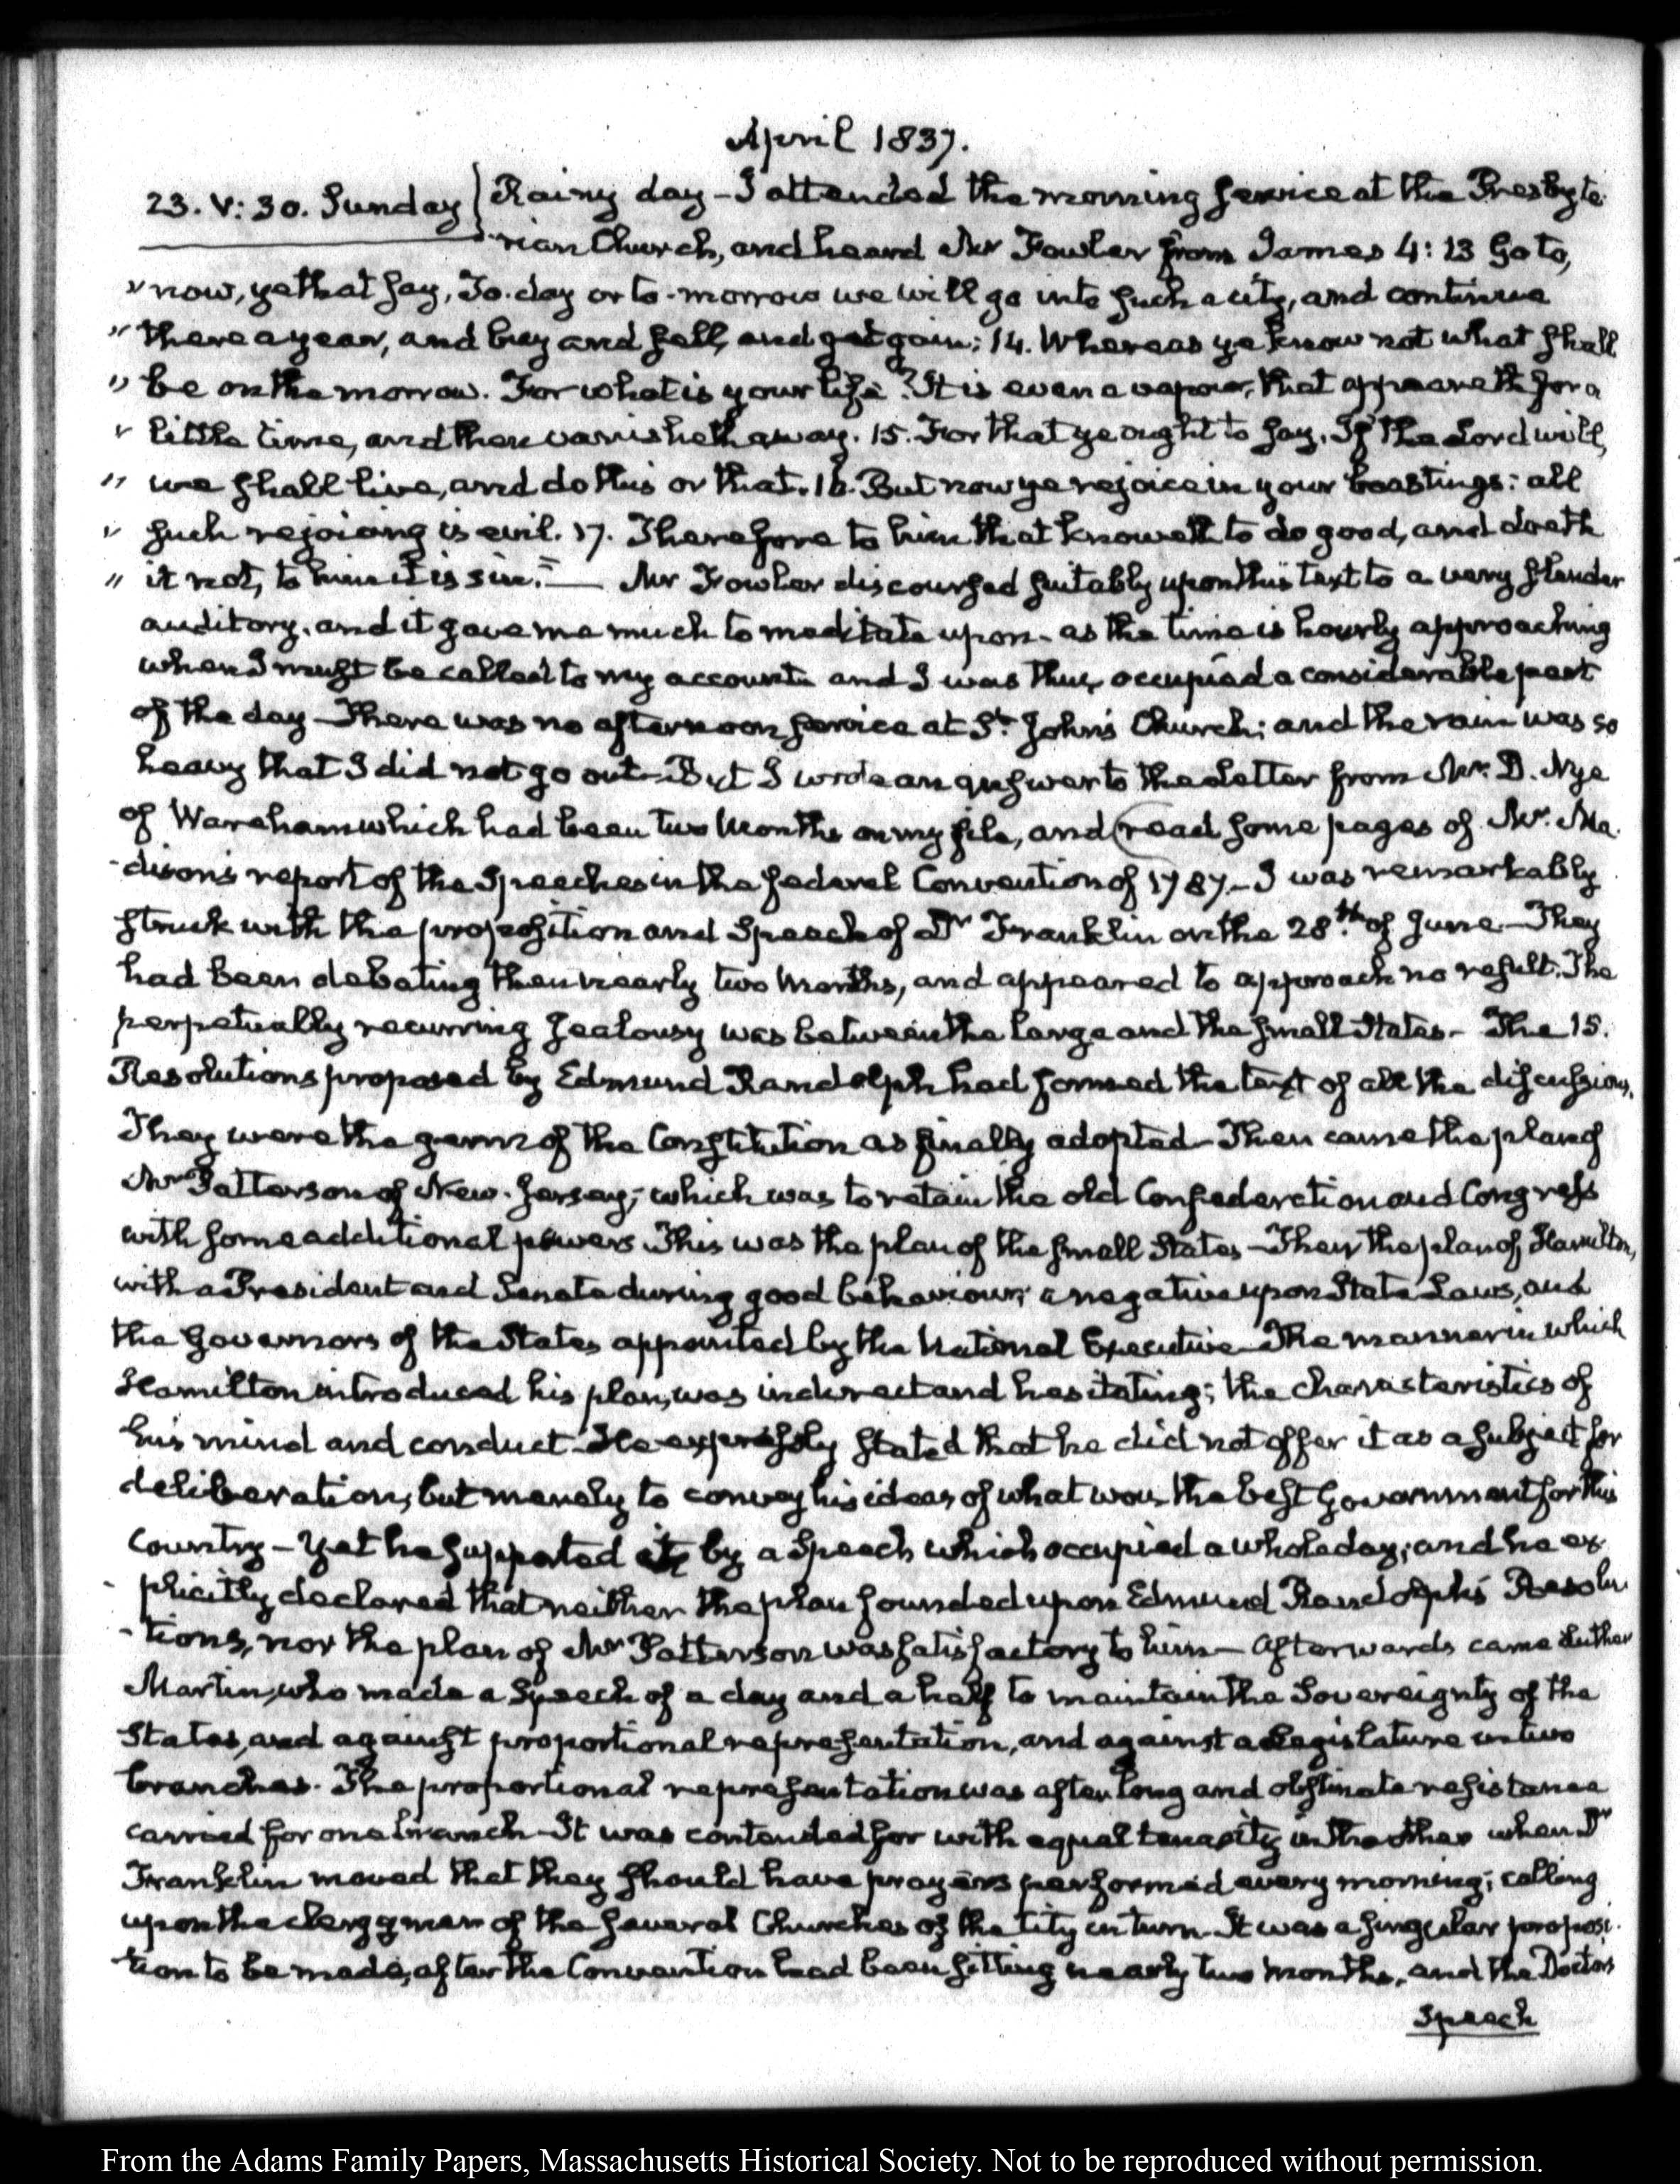 April 1837.
23. V: 30. Sunday } Rainy day – I attended the morning service at the Presbyte-
-rian Church, and heard Mr Fowler from James 4: 13 Go to,
" now, ye that say, To-day or to-morrow we will go into such a city, and continue
" there a year, and buy and sell, and get gain; 14. Whereas ye know not what shall
" be on the morrow. For what is your life? It is even a vapour, that appeareth for a
" little time, and then vanisheth away. 15. For that ye ought to say, If the Lord will,
" we shall live, and do this or that. 16. But now ye rejoice in your boastings: all
" such rejoicing is evil. 17. Therefore to him that knoweth to do good, and doeth
" it not, to him it is sin." — Mr Fowler discoursed suitably upon this text to a very slender
auditory, and it gave me much to meditate upon – as the time is hourly approaching
when I must be called to my account and I was thus occupied a considerable part
of the day – There was no afternoon service at St. John's Church; and the rain was so
heavy that I did not go out – But I wrote an answer to the Letter from Mr. D. Nye
of Wareham which had been two Months on my file, and read some pages of Mr. Ma-
-dison's report of the Speeches in the federal Convention of 1787. – I was remarkably
struck with the proposition and Speech of Dr Franklin on the 28th. of June – They
had been debating then nearly two Months, and appeared to approach no result. The
perpetually recurring jealousy was between the large and the small States – The 15.
Resolutions proposed by Edmund Randolph had formed the text of all the discussions.
They were the germ of the Constitution as finally adopted – Then came the plan of
Mr Patterson of New-Jersey; which was to retain the old Confederation and Congress
with some additional powers. This was the plan of the small States – Then the plan of Hamilton,
with a President and Senate during good behaviour; a negative upon State Laws, and
the Governors of the States appointed by the National Executive – The manner in which
Hamilton introduced his plan, was indirect and hesitating; the characteristics of
his mind and conduct – He expressly stated that he did not offer it as a subject for
deliberation, but merely to convey his ideas of what was the best Government for this
Country – Yet he supported it by a Speech which occupied a whole day; and he ex-
-plicitly declared that neither the plan founded upon Edmund Randolph's Resolu-
-tions, nor the plan of Mr Patterson was satisfactory to him – Afterwards came Luther
Martin, who made a Speech of a day and a half to maintain the Sovereignty of the
States, and against proportional representation, and against a Legislature in two
branches. The proportional representation was after long and obstinate resistance
carried for one branch – It was contended for with equal tenacity in the other when Dr
Franklin moved that they should have prayers performed every morning; calling
upon the clergymen of the several Churches of the City in turn. It was a singular proposi-
tion to be made, after the Convention had been sitting nearly two months, and the Doctor's
Speech
From the Adams Family Papers, Massachusetts Historical Society. Not to be reproduced without permission.